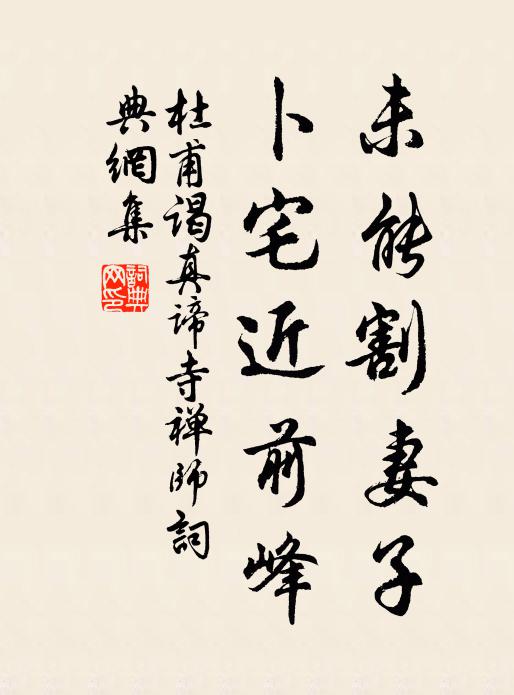 未能割妻子
卜宅近前峰
杜甫謁真諦寺禅師詞
典網集
詞典
网印